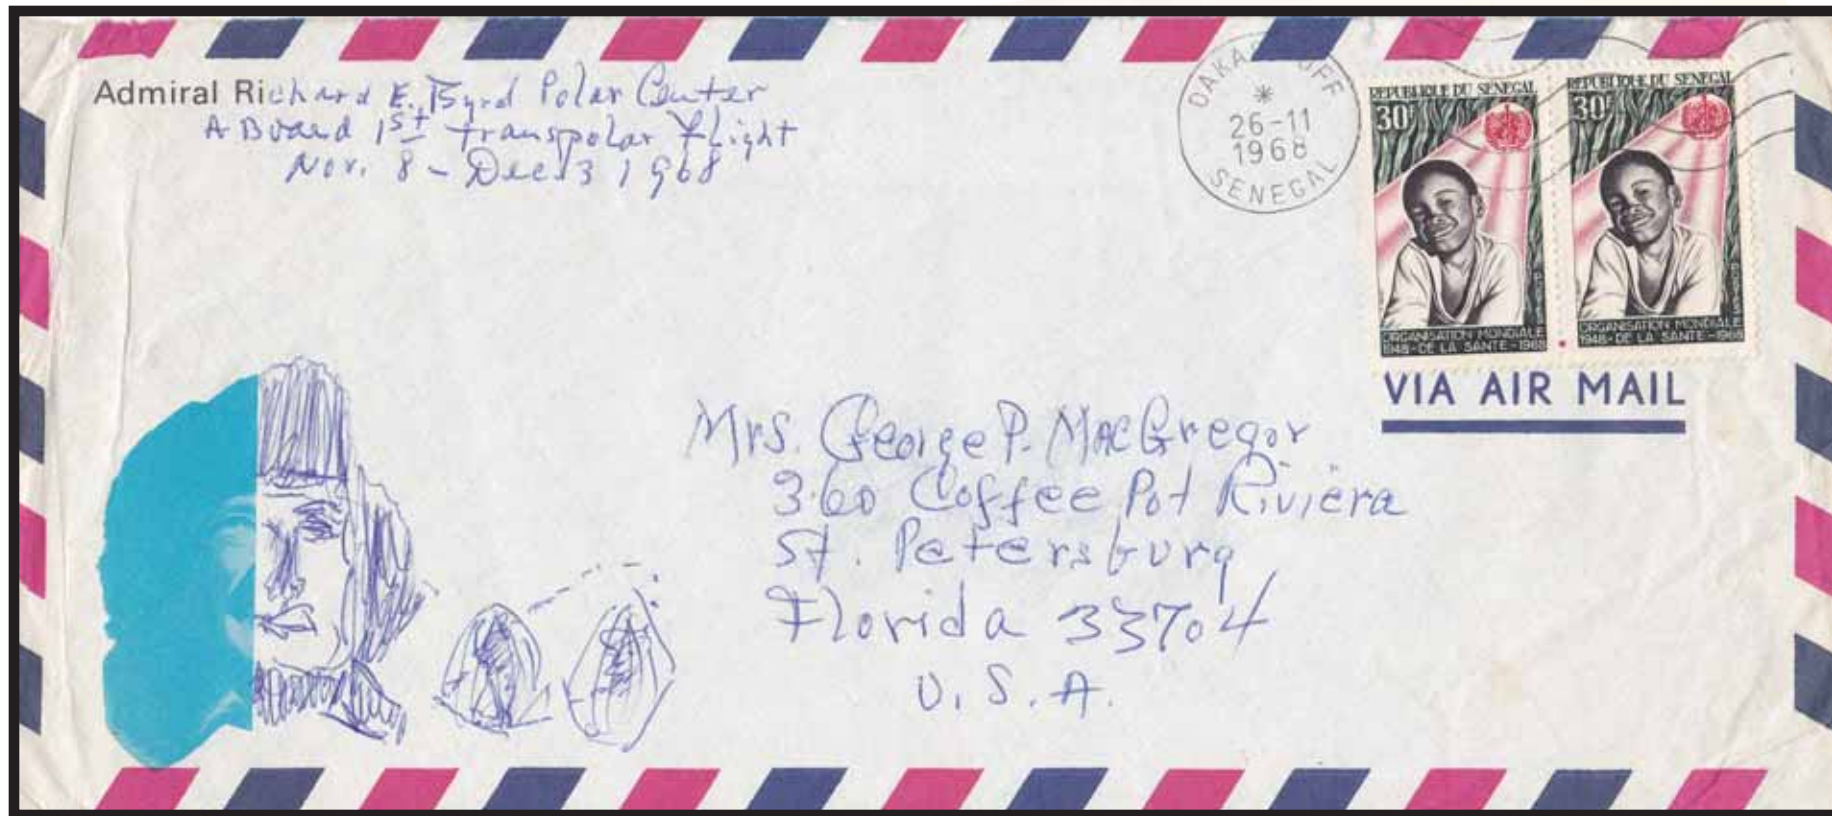 Admiral Richard E. Byrd Polar Center
ABoard 1st transpolar flight
Nov. 8 - Dec. 3 1968
DAKAR OFF
*
26-11
1968
SENEGAL
REPUBLIQUE DU SENEGAL
30F
ORGANISATION MONDIALE
1948-DE LA SANTE-1968
REPUBLIQUE DU SENEGAL
30F
ORGANISATION MONDIALE
1948-DE LA SANTE-1968
VIA AIR MAIL
Mrs. George P. MacGregor
360 Coffee Pot Riviera
St. Petersburg
Florida 33704
U.S.A.